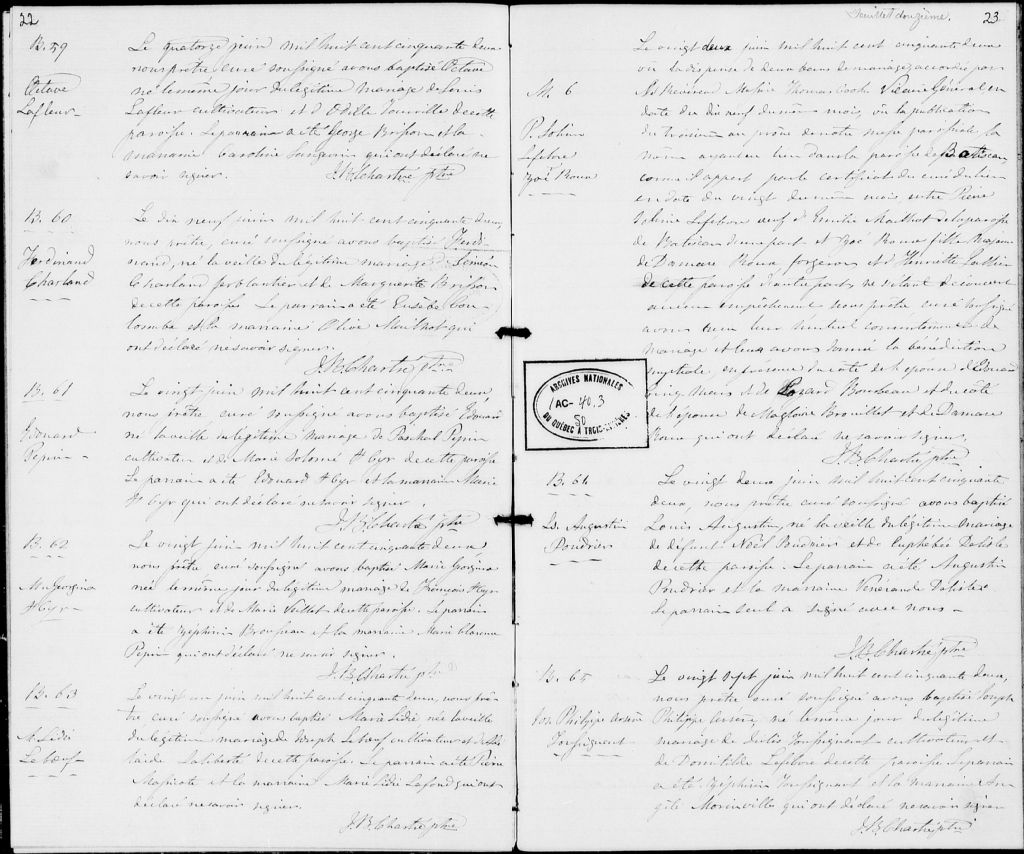 22
B. 59
Octave
Lafleur
Le quatorze juin mil huit cent cinquante deux
nous prêtre curé soussigné avons baptisé Octave
né le même jour du légitime mariage de Louis
Lafleur cultivateur et d'Odille Tourville de cette
paroisse. Le parrain a été George Brisson et la
marraine Caroline qui ont déclaré ne
savoir signer.
J.B. Chartré ptre
B. 60
Ferdinand
Charland
Le dix neuf juin mil huit cent cinquante deux,
nous prêtre, curé soussigné avons baptisé Ferdi-
nand, né la veille du légitime mariage de Siméon
Charland ferblantier et de Marguerite Brisson
de cette paroisse. Le parrain a été Eusèbe Cou-
lombe et la marraine Olive Mailhot qui
ont déclaré ne savoir signer.
J.B. Chartré ptre
B. 61
Edouard
Pepin
Le vingt juin mil huit cent cinquante deux,
nous prêtre curé soussigné avons baptisé Edouard
né la veille du légitime mariage de Paschal Pepin
cultivateur et de Marie Salomé St Cyr de cette paroisse
Le parrain a été Edouard St Cyr et la marraine Marie
St Cyr qui ont déclaré ne savoir signer
J.B. Chartré ptre
B. 62
M. Georgina
St Cyr
Le vingt juin mil huit cent cinquante deux,
nous prêtre curé soussigné avons baptisé Marie Georgina
née le même jour du légitime mariage de François St Cyr
cultivateur et de Marie Veillet de cette paroisse. Le parrain
a été Zéphirin Brousseau et la marraine Marie Clarence
Pepin qui ont déclaré ne savoir signer.
J.B. Chartré ptre
B. 63
M. Lidie
Lebœuf
Le vingt un juin mil huit cent cinquante deux, nous prê-
tre curé soussigné avons baptisé Marie Lidie née la veille
du légitime mariage de Joseph Lebœuf cultivateur et d'Adé
laide Laliberté de cette paroisse. Le parrain a été Pierre
Massicote et la marraine Marie Lidie Lafond qui ont
déclaré ne savoir signer.
J.B. Chartré ptre
feuillet douzième.
23
M. 6
P.
Lefebvre
Zoé Roux
Le vingt deux juin mil huit cent cinquante deux
vu la dispense de deux bans de mariage accordée par
Mr Thomas Cooke Vicaire Général en
date du dix neuf du même mois, vu la publication
du troisième au prône de notre messe paroissiale, la
même ayant eu lieu dans la paroisse de Batiscan
comme il appert par le certificat du curé du lieu
en date du vingt du même mois entre Pierre
Lefebvre veuf d'Emilie Mailhot de la paroisse
de Batiscan d'une part et Zoé Roux fille Majeure
de Damase Roux forgeron et d'Henriette
de cette paroisse d'autre part, ne s'étant découvert
aucun empêchement nous prêtre curé soussigné
avons reçu leur mutuel consentement de
mariage et leur avons donné la bénédiction
nuptiale, en présence du côté de l'époux d'Edouard
et de Lozard Bourbeau et du côté
de l'épouse de Magloire Brouillet et de Damase
Roux qui ont déclaré ne savoir signer.
J.B. Chartré ptre
ARCHIVES NATIONALES
AC- 40.3
50
DU QUÉBEC À TROIS-RIVIÈRES
B. 64
Ls. Augustin
Poudrier
Le vingt deux juin mil huit cent cinquante
deux, nous prêtre curé soussigné avons baptisé
Louis Augustin, né la veille du légitime mariage
de défunt Noël Poudrier et de Euphébée Delisle
de cette paroisse. Le parrain a été Augustin
Poudrier et la marraine Vénérande Delisle.
Le parrain seul a signé avec nous
J.B. Chartré ptre
B. 65
Jos. Philippe Arsène
Toussignant
Le vingt sept juin mil huit cent cinquante deux,
nous prêtre curé soussigné avons baptisé Joseph
Philippe Arsène, né le même jour du légitime
mariage de Jules Toussignant cultivateur et
de Domitilde Lefebvre de cette paroisse. Le parrain
a été Zéphirin Toussignant et la marraine An-
gèle Morinville qui ont déclaré ne savoir signer
J.B. Chartré ptre